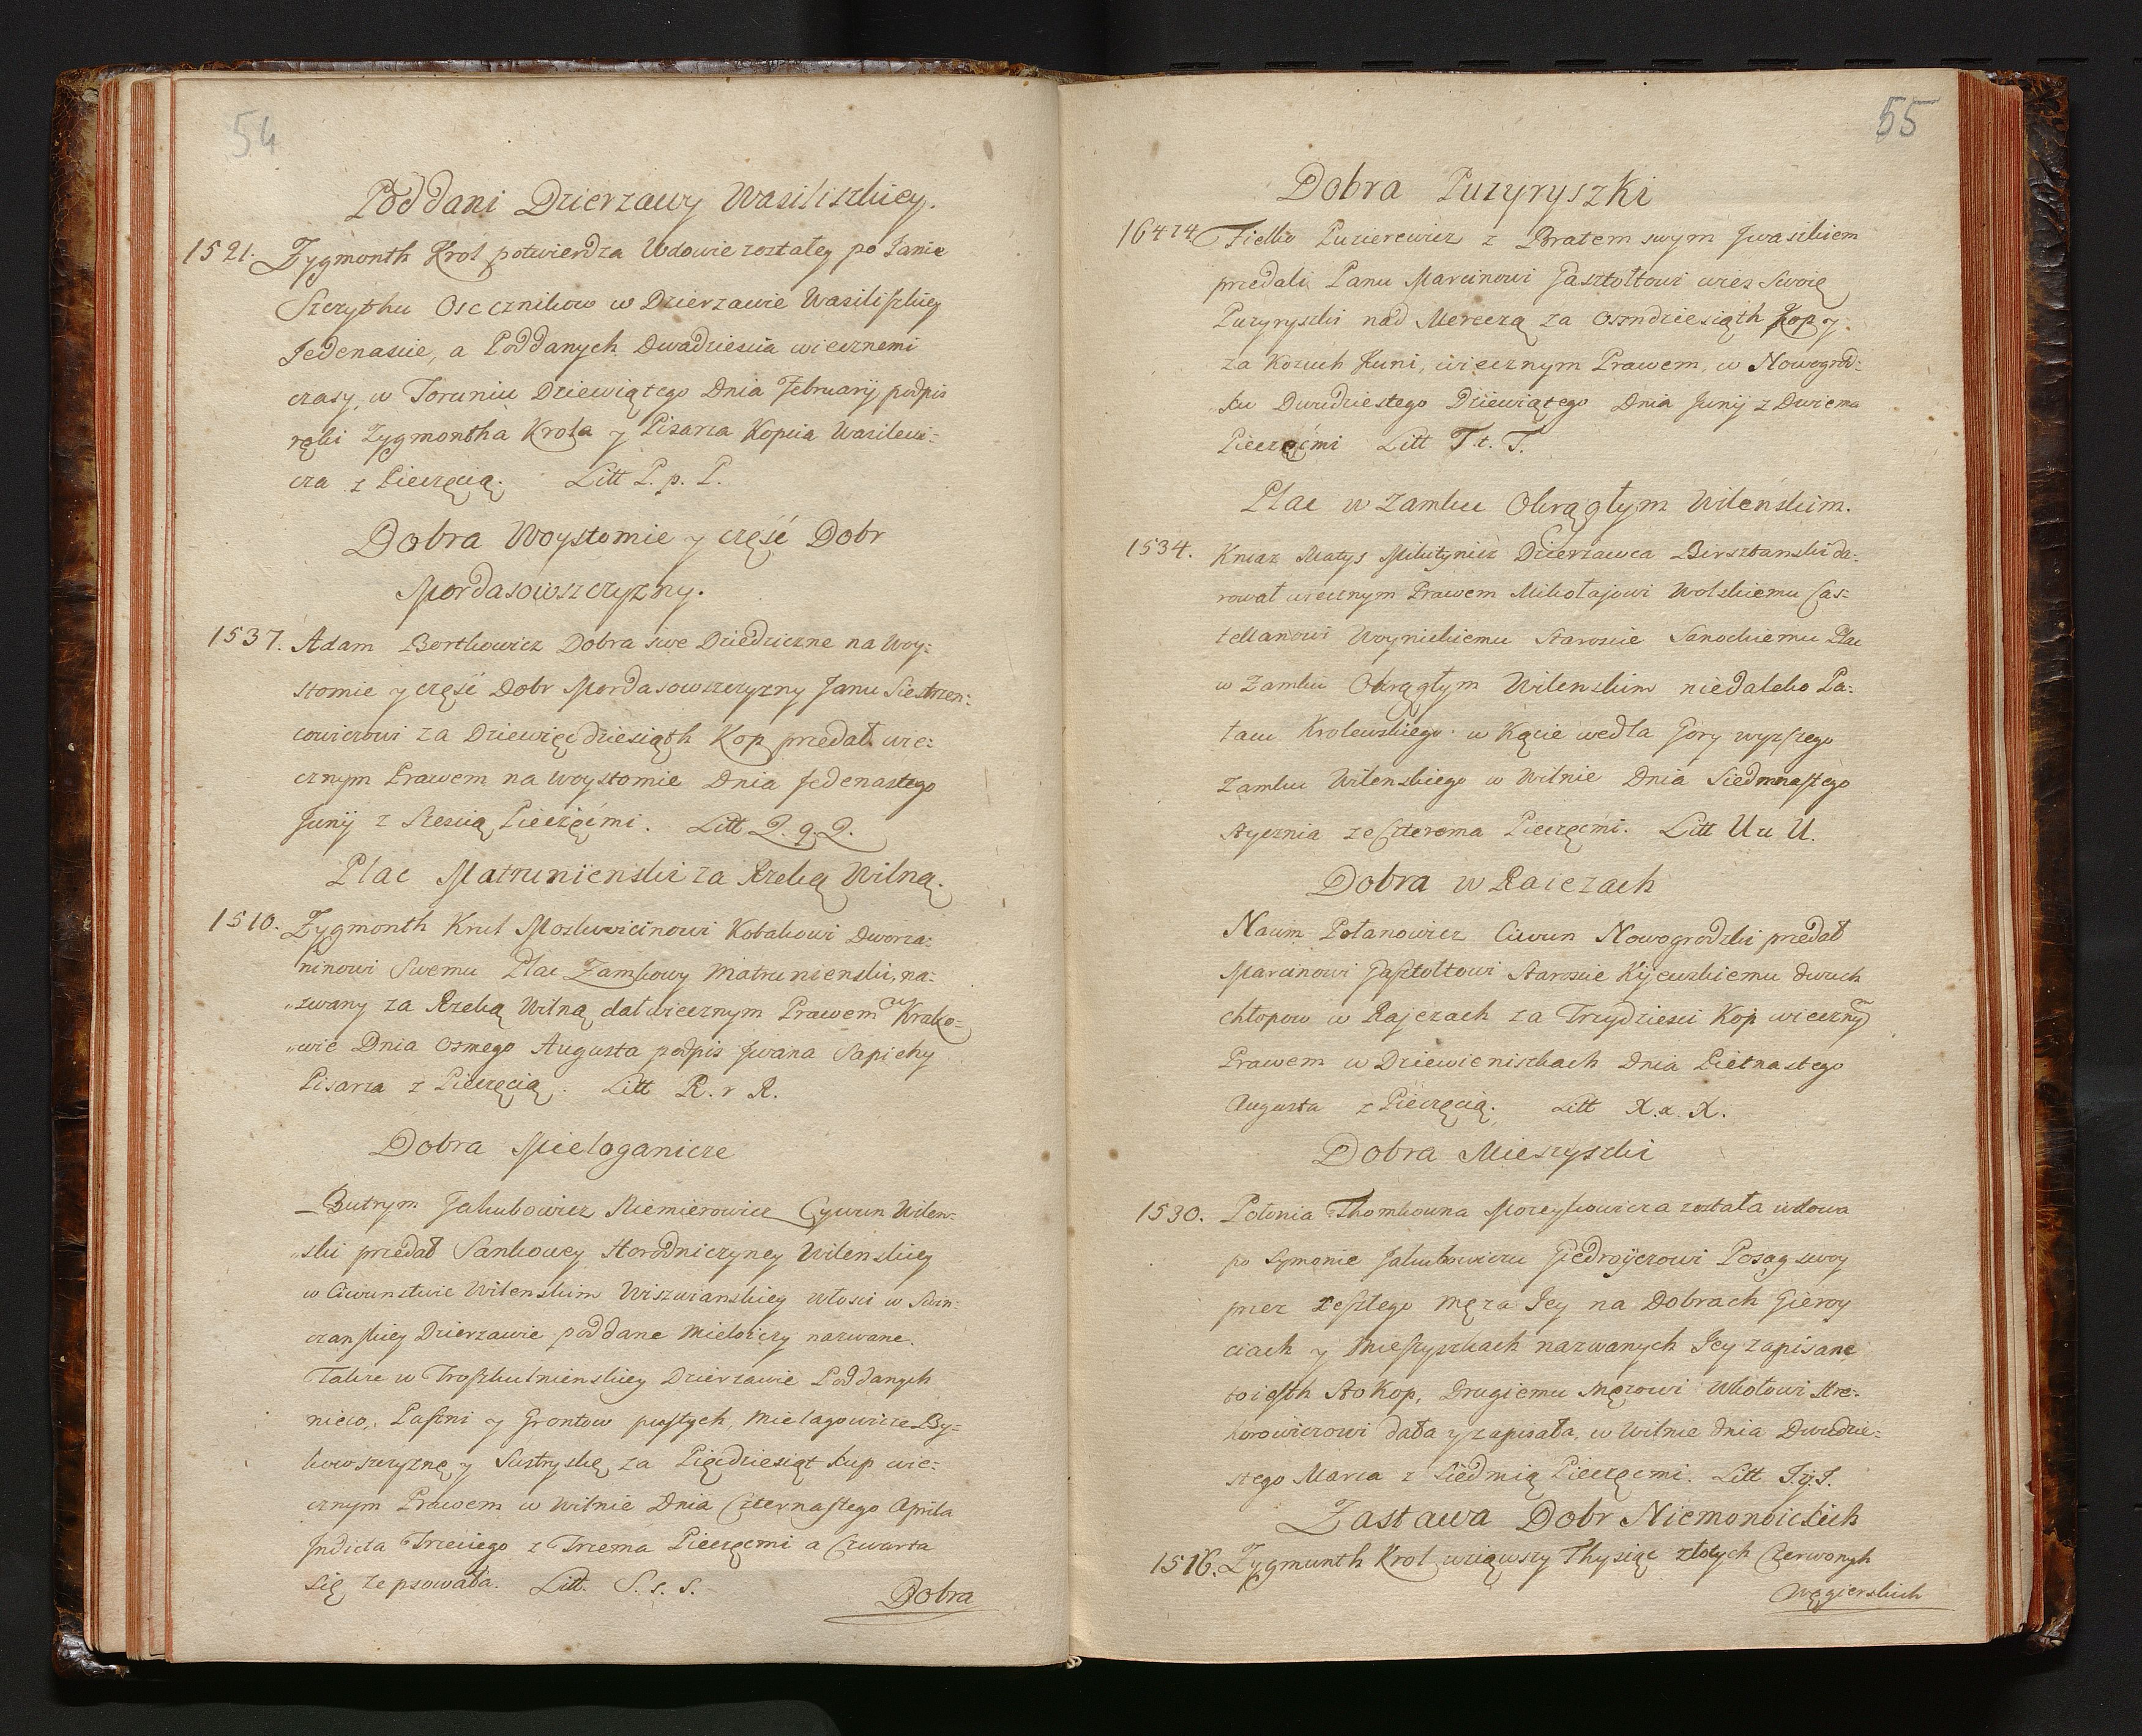 54
Poddani Dzierzawy Wasiliszkiey.
1521. Zygmonth Krol potwierdza Wdowie zostałey po Janie
Szczythu Osocznikow w Dzierzawie Wasiliszkiey
Jedenascie, a Poddanych Dwadziescia wiecznemi
czasy, w Toruniu Dziewiątego Dnia Februarij podpis
ręki Zygmontha Krola y Pisarza Kopcia Wasilewi:
cza z Pieczęcią. Litt P. p. P.
Dobra Woystomie y część Dobr
Mordasowszczyzny.
1537. Adam Bortkowicz Dobra swe Dziedziczne na Woy:
stomie y część Dobr Mordasowszczyzny Janu Siestrzen:
cowiczowi za Dziewięcdziesiąth Kop przedał wie:
cznym Prawem na Woystomie Dnia Jedenastego
Junij z Szescią Pieczęćmi. Litt Q. q. Q.
Plac Matrunienski za Rzeką Wilną.
1510. Zygmonth Krul Moskwicinowi Kobakowi Dworza:
ninowi Swemu Plac Zamkowy Matrunienski, na:
„zwany za Rzeką Wilną dał wiecznym Prawem w Krako:
„wie Dnia Osmego Augusta podpis Jwana Sapiehy
Pisarza z Pieczęcią. Litt R. r R.
Dobra Mieloganicze
Butrym Jakubowicz Niemierowicz Cywun Wilen:
„ski przedał Sankowey Horodniczyney Wilenskiey
w Ciwunstwie Wilenskim Wiszwianskiey włosci w Swin:
czanskiey Dzierzawie poddane Mieloiczy nazwane.
Takze w Troszkulnienskiey Dzierzawie Poddanych
niew, Paszni y Grontow pustych Mielagowicze By:
kowszczyznę y Sustryskę za Pięcdziesiąt kup wie:
cznym Prawem w Wilnie Dnia Czternastego Aprila
Jndicta Trzeciego z Trzema Pieczęcmi a Czwarta
się zepsowała. Litt. S. s. S.
Dobra
55
Dobra Puzyryszki
1474 Fiedko Puzierewicz z Bratem swym Jwaszkiem
przedali Panu Marcinowi Gasztołtowi wies Swoię
Puzyryszki nad Mereczą za Osmdziesiąth Kop y
za Kozuch Kuni, wiecznym Prawem, w Nowogrod:
„ku Dwudziestego Dziewiątego Dnia Junij z Dwiema
Pieczęćmi Litt T. t. T.
Plac w Zamku Okrągłym Wilenskim.
1534. Kniaz Matys Mikitynicz Dzierzawca Birsztanski da:
rował wiecznym Prawem Mikołajowi Wolskiemu Cas:
tellanowi Woynickiemu Staroscie Sanockiemu Plac
w Zamku Okrągłym Wilenskim niedaleko Pa:
łacu Krolewskiego w Kącie wedla Gory wyzszego
Zamku Wilenskiego w Wilnie Dnia Siedmnastego
Stycznia ze Czterema Pieczęćmi. Litt U u U.
Dobra w Raiczach
Naum Połanowicz Ciwun Nowogrodzki przedał
Marcinowi Gasztołtowi Staroscie Kijewskiemu dwuch
chłopow w Rajczach za Trzydziesci Kop wiecznym
Prawem w Dziewieniszkach Dnia Pietnastego
Augusta z Pieczęcią. Litt X. x X.
Dobra Mieszyszki
1530. Połonia Thomkowna Mozeykowicza została wdowa
po Symonie Jakubowiczu Giedroyczowi Posag swoy
przez zeszłego męza Jey na Dobrach Gieroy
ciach y Mieszyszkach nazwanych Jey zapisane
to iesth Sto Kop, Drugiemu Męzowi
dała y zapisała, w Wilnie dnia Dwudzie:
stego Marca z Siedmią Pieczęcmi. Litt
Zastawa Dobr Niemonoickich
1516. Zygmunth Krol wziąwszy Thysiąc złotych Czerwonych
Węgierskich